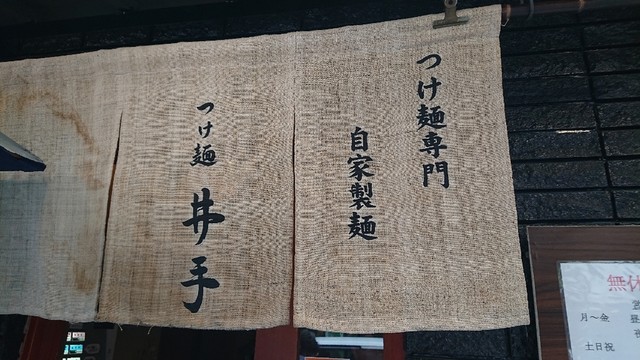 つけ麺専門
自家製麺
つけ麺
井手
無休
月〜金
土日祝